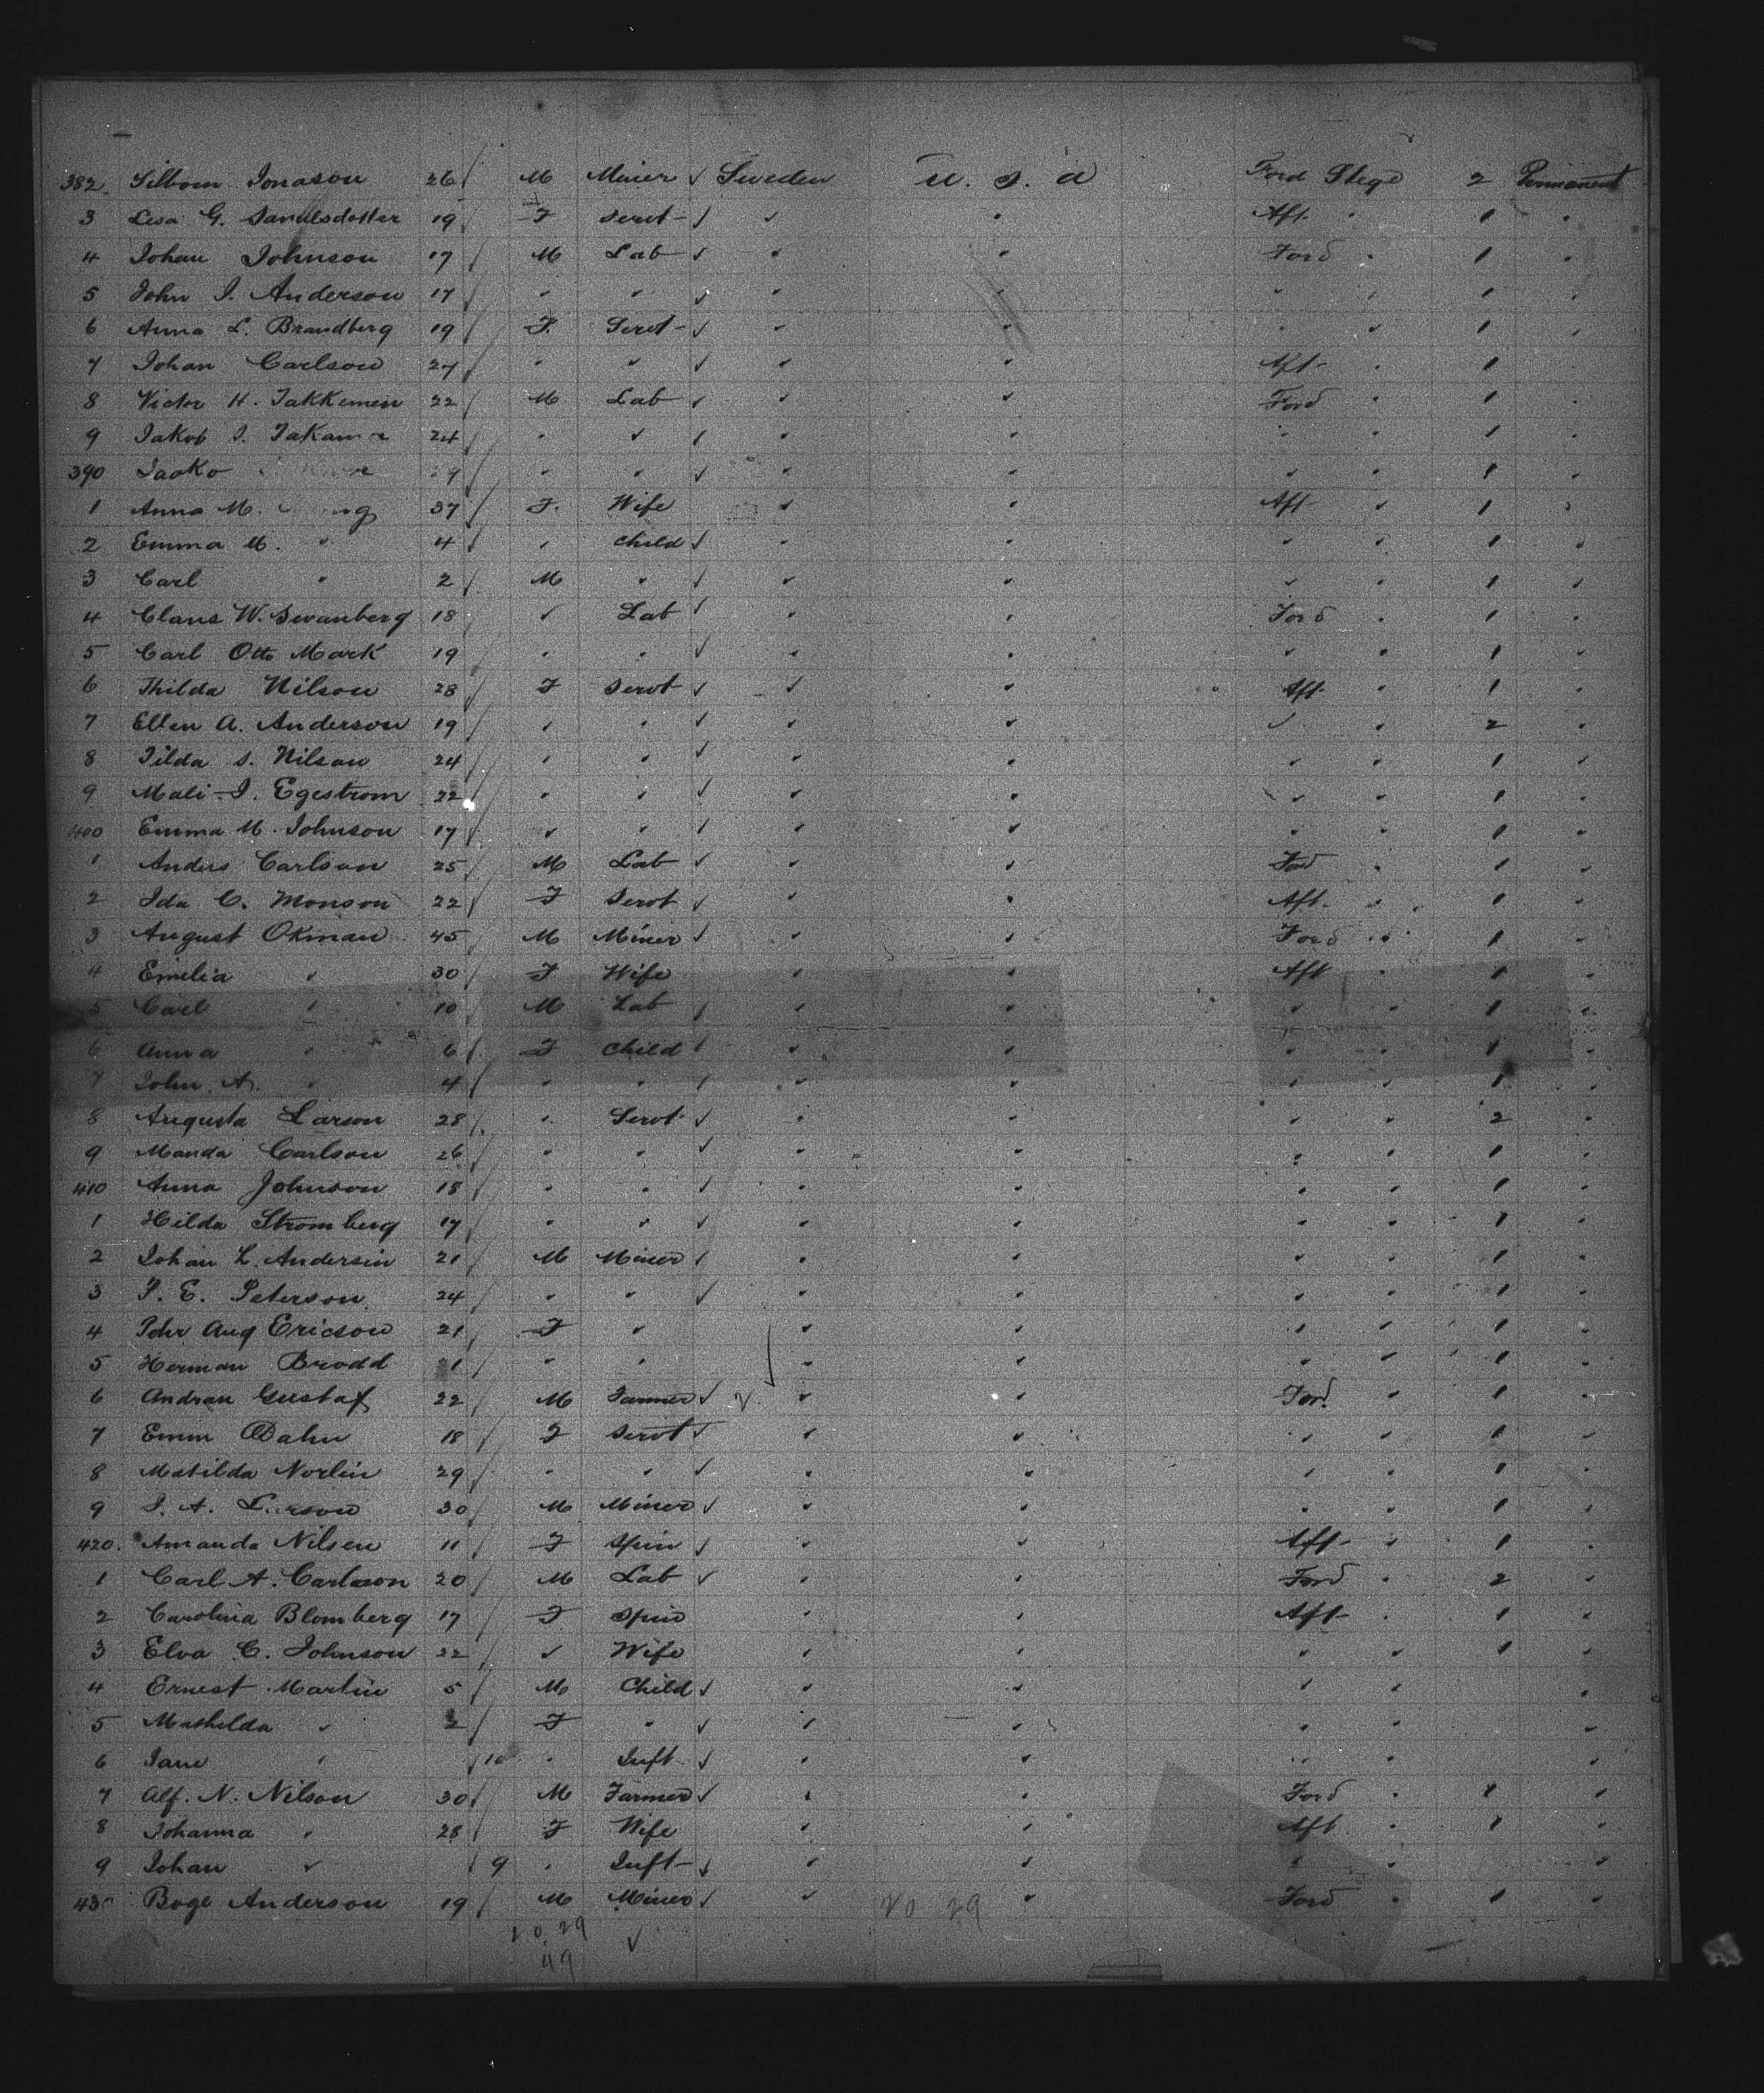 382 Silbom Jonason 26 / M Miner ✓ Sweden U. S. A Ford Stege 2 Permanent
3 Lisa G. Samelsdotter 19 / F Servt - ✓ ✓ " Aft " 1 "
4 Johan Johnson 17 / M Lab ✓ " " Ford " 1 "
5 John J. Anderson 17 / " " ✓ " " " " 1 "
6 Anna L. Brandberg 19 / F. Servt - ✓ " " " " 1 "
7 Johan Carlson 27 / " " ✓ " " Aft - " 1 "
8 Victor H. Jakkemen 22 / M Lab ✓ " " Ford " 1 "
9 Jakob J. 24 / " " ✓ " " " " 1 "
390 Jaako " " ✓ " " " " 1 "
1 Anna M. 37 / F. Wife " " Aft " 1 "
2 Emma M. " 4 / " Child ✓ " " " " 1 "
3 Carl " 2 / M " ✓ " " " " 1 "
4 Claus W. Swanberg 18 / " Lab ✓ " " Ford " 1 "
5 Carl Otto Mark 19 / " " ✓ " " " " 1 "
6 Thilda Nilson 28 / F Servt ✓ " " Aft " 1 "
7 Ellen A. Anderson 19 / " " ✓ " " " " 2 "
8 Tilda S. Nilson 24 / " " ✓ " " " " 1 "
9 Mali J. Egestrom 22 / " " ✓ " " " " 1 "
400 Emma M. Johnson 17 / " " ✓ " " " " 1 "
1 Anders Carlson 25 / M Lab ✓ " " Ford " 1 "
2 Ida C. Monson 22 / F Servt ✓ " " Aft " 1 "
3 August Okman 45 / M Miner ✓ " " Ford " 1 "
4 Emelia " 30 / F Wife " " Aft " 1 "
5 Carl " 10 / M Lab ✓ " " " " 1 "
6 Anna " 6 / F Child ✓ " " " " 1 "
7 John A. " 4 / " " ✓ " " " " 1 "
8 Augusta Larson 28 / " Servt ✓ " " " " 2 "
9 Manda Carlson 26 / " " ✓ " " " " 1 "
410 Anna Johnson 18 / " " ✓ " " " " 1 "
1 Hilda Stromberg 17 / " " ✓ " " " " 1 "
2 Johan L. Andersin 21 / M Miner ✓ " " " " 1 "
3 P. E. Peterson 24 / " " ✓ " " " " 1 "
4 Pehr Aug Ericson 21 / F " " " " " 1 "
5 Herman Brodd / " " ✓ " " " " 1 "
6 Andran Gustaf 22 / M Farmer ✓ ✓ " " Ford " 1 "
7 Emm Dahn 18 / F Servt ✓ " " " " 1 "
8 Matilda Norlin 29 / " " ✓ " " " " 1 "
9 J. A. Larson 30 / M Miner ✓ " " " " 1 "
420. Amanda Nilsen 11 / F Spin ✓ " " Aft - " 1 "
1 Carl A. Carlsson 20 / M Lab ✓ " " Ford " 2 "
2 Carolina Blomberg 17 / F Spin " " Aft - " 1 "
3 Elva C. Johnson 22 / " Wife " " " " 1 "
4 Ernest Martin 5 / M Child ✓ " " " " "
5 Mathilda " 2 / F " ✓ " " " " "
6 Jane " / 10 " Inft ✓ " " " " "
7 Alf. N. Nilson 30 / M Farmer ✓ " " Ford " 1 "
8 Johanna " 28 / F Wife " " Aft " 1 "
9 Johan " / 9 " Inft - ✓ " " " " "
430 Boge Anderson 19 / M Miner ✓ " 20 29 " Ford " 1 "
20 29 ✓
49